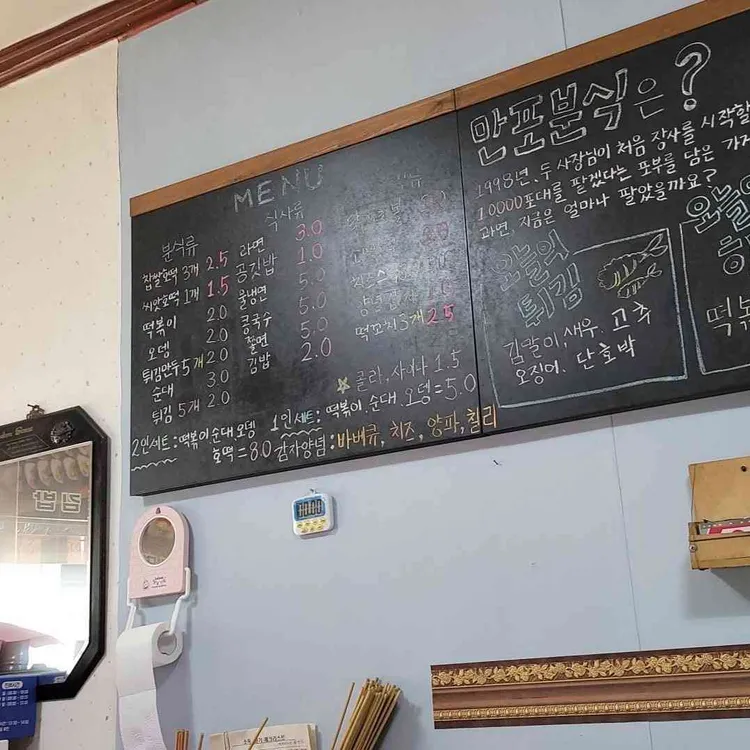 MENU
분식류
찹쌀호떡 3개 2.5
씨앗호떡 1개 1.5
떡볶이 2.0
오뎅 2.0
튀김만두 5개 2.0
순대 3.0
튀김 5개 2.0
식사류
라면 3.0
공깃밥 1.0
물냉면 5.0
콩국수 5.0
쫄면 5.0
김밥 2.0
떡꼬치 3개 2.5
콜라, 사이다 1.5
2인세트: 떡볶이 순대 오뎅
호떡 = 8.0
1인세트: 떡볶이 순대 오뎅 = 5.0
감자양념: 바베큐, 치즈, 양파, 칠리
만포분식은?
1998년, 두 사장님이 처음 장사를 시작할
10000포대를 팔겠다는 포부를 담은 가
과연, 지금은 얼마나 팔았을까요?
오늘의
튀김
김말이, 새우, 고추
오징어, 단호박
오늘의
떡볶
김밥